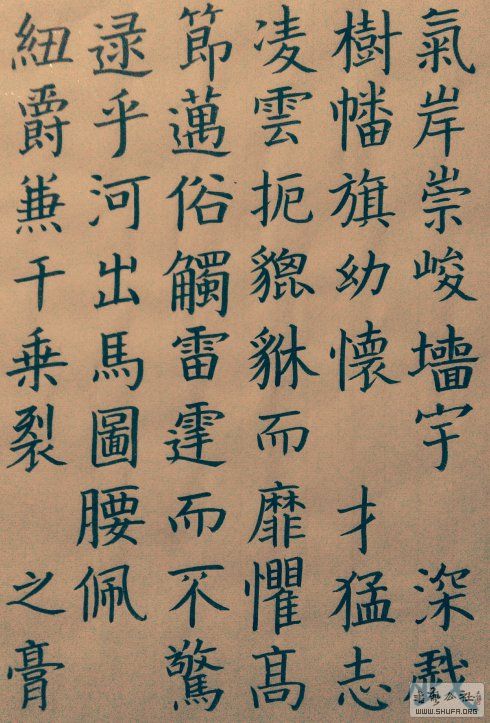 氣岸崇峻墻宇 深
樹幡旗幼懷 才猛志
凌雲扼貔貅而靡懼高
節邁俗觸雷霆而不驚
逯乎河出馬圖腰佩
紐爵兼千乗裂 之膏
WWW.SHUFA.ORG